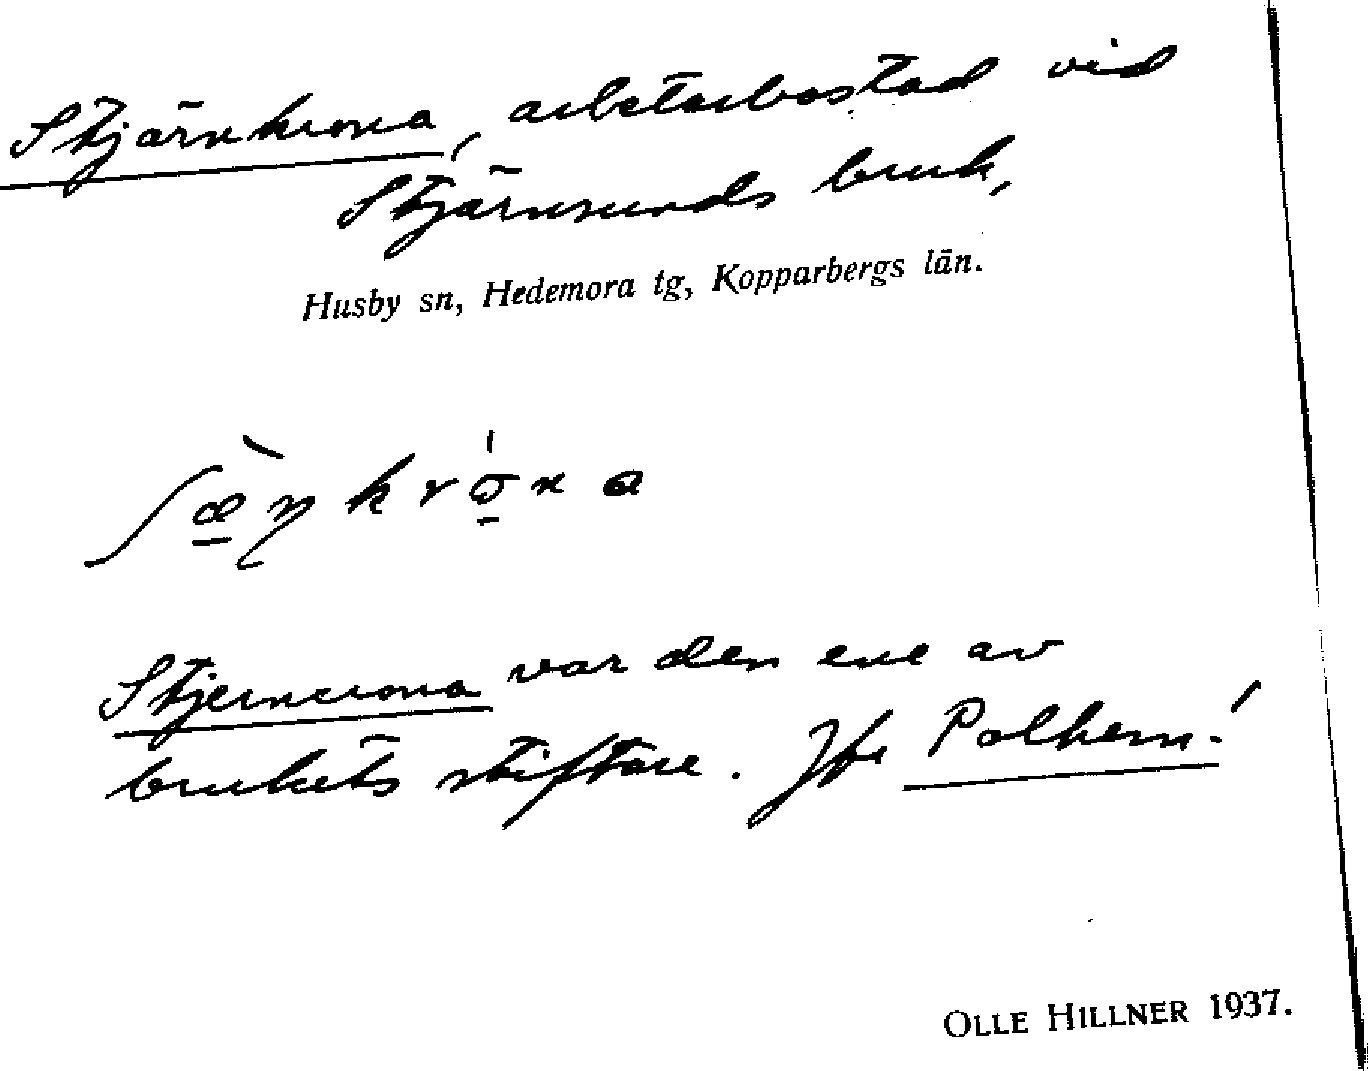 Stjärnkrona, arbetarbostad vid
Stjärnsunds bruk,
Husby sn, Hedemora tg, Kopparbergs län.
ʃæ̀ɳkrɷ́na
Stjerncrona var den ene av
brukets stiftare. Jfr Polhem!
OLLE HILLNER 1937.